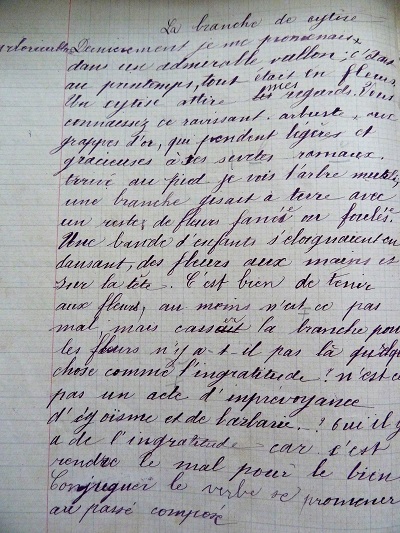 La branche de cytise
Dernièrement je me promenais
dans un admirable vallon ; c'était
au printemps, tout était en fleurs.
Un cytise attire mes regards. Vous
connaissez ce ravissant arbuste, aux
grappes d'or, qui pendent légères et
gracieuses à ses sveltes rameaux.
Arrivé au pied je vois l'arbre mutilé,
une branche gisait à terre avec
un reste de fleurs fanées ou foulées.
Une bande d'enfants s'éloignaient en
dansant, des fleurs aux mains et
sur la tête. C'est bien de tenir
aux fleurs, au moins n'est ce pas
mal, mais casser la branche pour
les fleurs n'y a-t-il pas là quelque
chose comme l'ingratitude ! n'est ce
pas un acte d'imprevoyance
d'égoïsme et de barbarie ! Oui il y
a de l'ingratitude car c'est
rendre le mal pour le bien
Conjuguer le verbe se promener
au passé composé